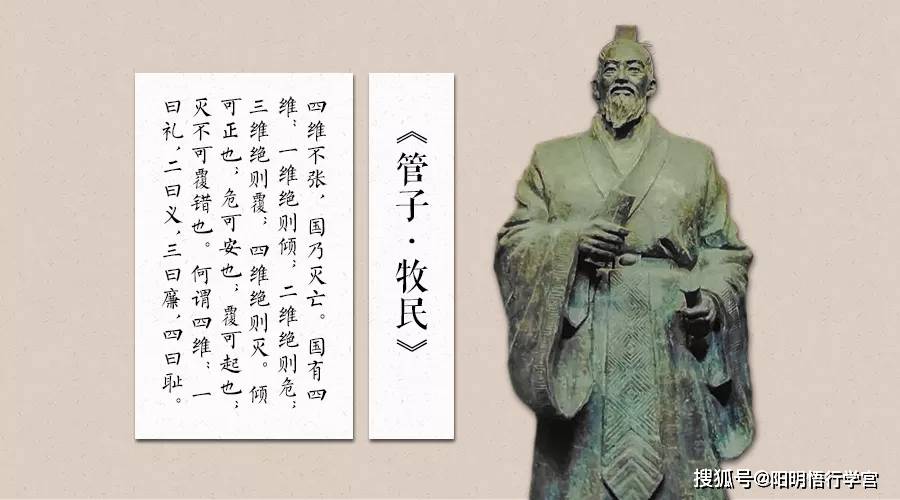 《管子·牧民》
四维不张，国乃灭亡。国有四
维；一维绝则倾；二维绝则危；
三维绝则覆；四维绝则灭。倾
可正也；危可安也；覆可起也；
灭不可覆错也。何谓四维：一
曰礼，二曰义，三曰廉，四曰耻。
搜狐号@阳明悟行学宫